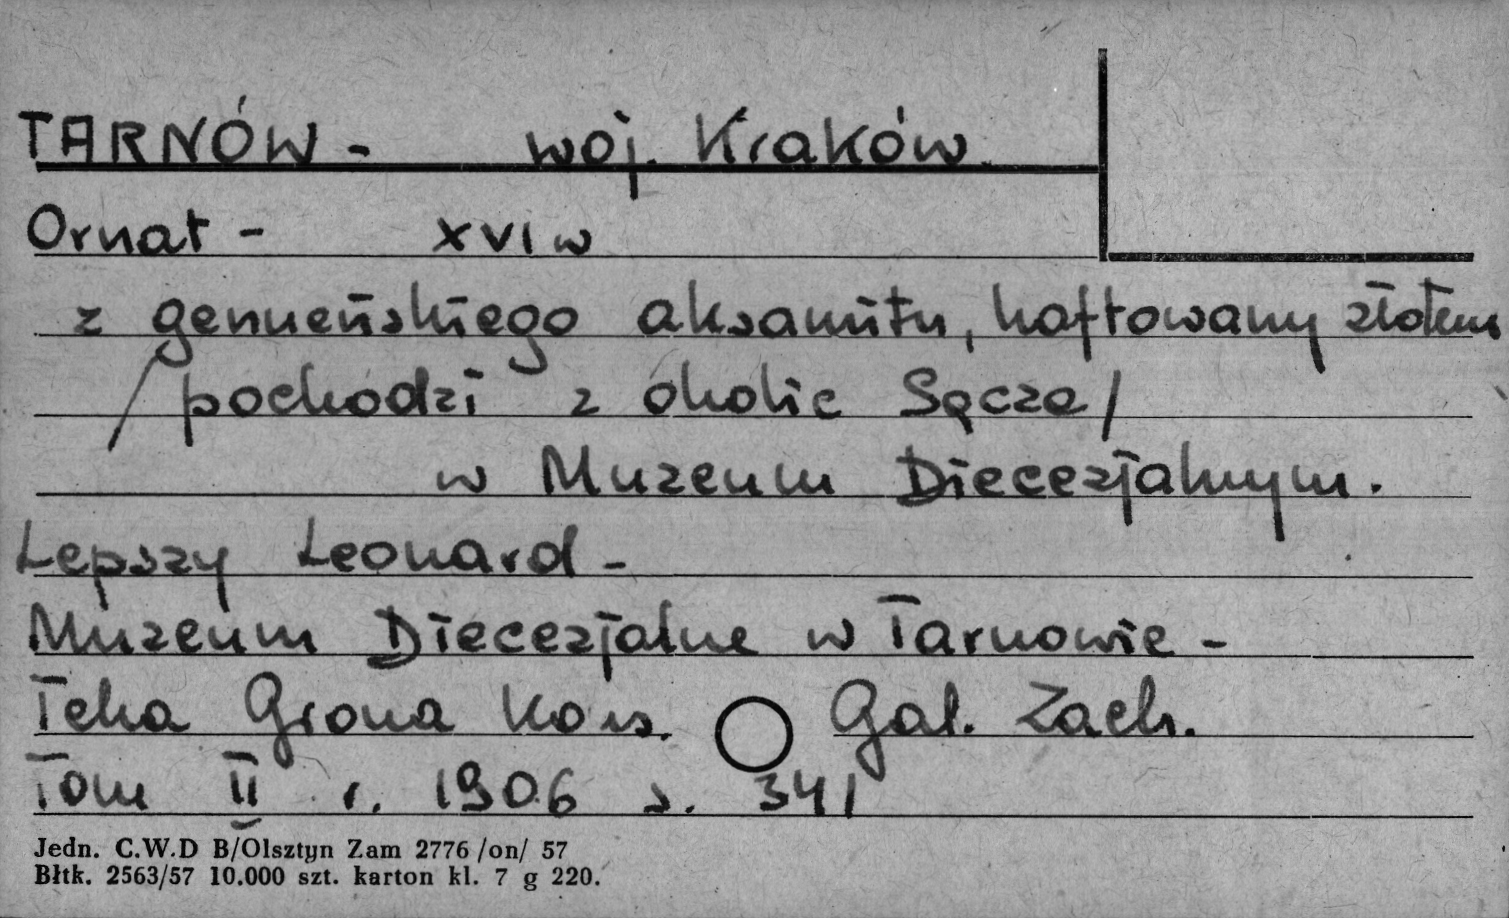 TARNÓW - woj. Kraków.
Ornat - XVI w
z genueńskiego aksamitu, haftowany złotem
/pochodzi z okolic Sącza/
w Muzeum Diecezjalnym.
Lepszy Leonard -
Muzeum Diecezjalne w Tarnowie -
Teka Grona Kons. Gal. Zach.
Tom II r. 1906 s. 341
Jedn. C.W.D B/Olsztyn Zam 2776 /on/ 57
Błtk. 2563/57 10.000 szt. karton kl. 7 g 220.